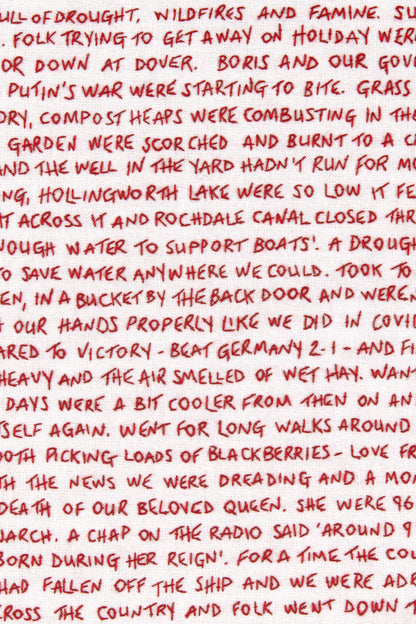 ULL OF DROUGHT, WILDFIRES AND FAMINE. SU
. FOLK TRYING TO GET AWAY ON HOLIDAY WER
OR DOWN AT DOVER. BORIS AND OUR GOV
PUTIN'S WAR WERE STARTING TO BITE. GRASS
DRY, COMPOST HEAPS WERE COMBUSTING IN THE
GARDEN WERE SCORCHED AND BURNT TO A C
AND THE WELL IN THE YARD HADN'T RUN FOR M
NG, HOLLINGWORTH LAKE WERE SO LOW IT FE
T ACROSS IT AND ROCHDALE CANAL CLOSED THR
NOUGH WATER TO SUPPORT BOATS'. A DROUGH
O SAVE WATER ANYWHERE WE COULD. TOOK TO
EN, IN A BUCKET BY THE BACK DOOR AND WERE
OUR HANDS PROPERLY LIKE WE DID IN COVI
ARED TO VICTORY - BEAT GERMANY 2-1 - AND FI
HEAVY AND THE AIR SMELLED OF WET HAY. WAN
DAYS WERE A BIT COOLER FROM THEN ON AN
TSELF AGAIN. WENT FOR LONG WALKS AROUND
OOTH PICKING LOADS OF BLACKBERRIES - LOVE FR
TH THE NEWS WE WERE DREADING AND A MO
DEATH OF OUR BELOVED QUEEN. SHE WERE 96
NARCH. A CHAP ON THE RADIO SAID 'AROUND 9
BORN DURING HER REIGN'. FOR A TIME THE CO
HAD FALLEN OFF THE SHIP AND WE WERE ADR
CROSS THE COUNTRY AND FOLK WENT DOWN T